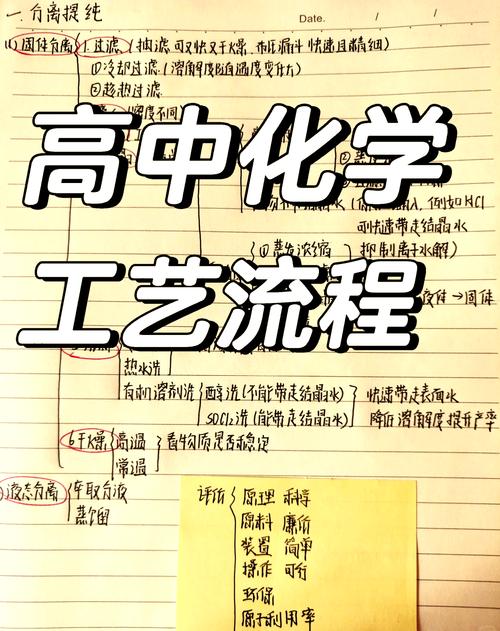 一. 分离提纯
Date. / /
(1) 固体分离 1.过滤 (抽滤 可又快又干燥, 布氏漏斗 快速且精细)
①冷却过滤 (溶解度随温度变化大)
②趁热过滤
密度不同
高中化学
例如HCl
可快速带走结晶水
①蒸发浓缩 抑制离子水解)
工艺流程
→固体
热水洗
有机溶剂洗 醇洗 (不能带走结晶水) 快速带走表面水
SOCl₂洗 (能带走结晶水) 降低溶解度提升产率
6干燥 高温 看物质是否稳定
常温
液态分离 萃取分液
蒸馏
评价 原理 科学
原料 廉价
装置 简单
操作 可行
环保
原子利用率